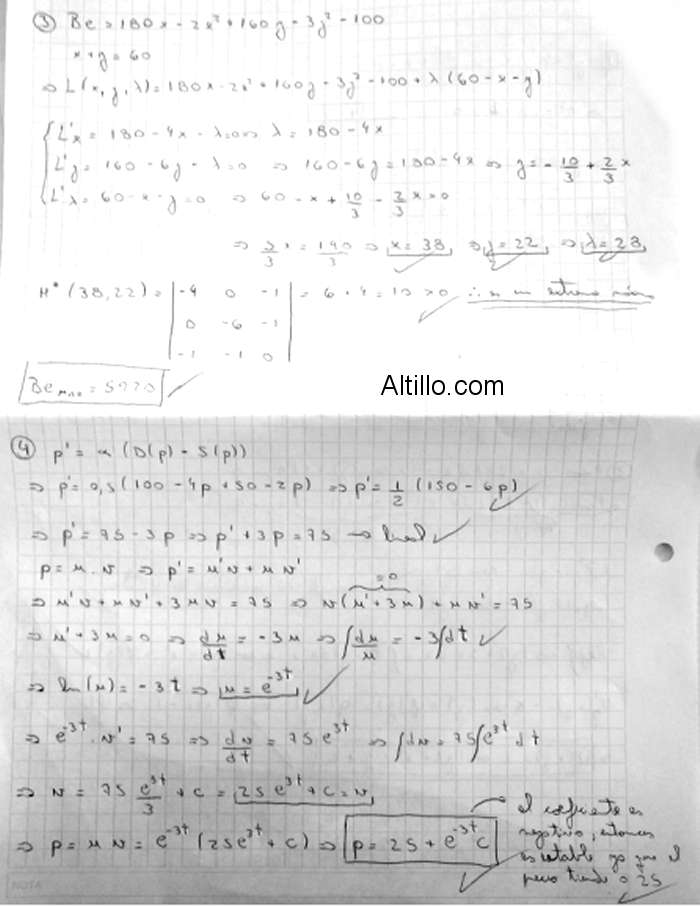 ③ Be = 180x - 2x² + 160y - 3y² - 100
x + y = 60
⇒ L(x, y, λ) = 180x - 2x² + 160y - 3y² - 100 + λ(60 - x - y)
L'x = 180 - 4x - λ = 0 ⇒ λ = 180 - 4x
L'y = 160 - 6y - λ = 0 ⇒ 160 - 6y = 180 - 4x ⇒ y = -10/3 + 2/3 x
L'λ = 60 - x - y = 0 ⇒ 60 - x + 10/3 - 2/3 x = 0
⇒ 5/3 x = 190/3 ⇒ x = 38 ⇒ y = 22 ⇒ λ = 28
H* (38, 22) = | -4 0 -1 | = 6 + 4 = 10 > 0 ∴ es un extremo máx
0 -6 -1
-1 -1 0
Be máx =
Altillo.com
④ p' = α (D(p) - S(p))
⇒ p' = 0,5 (100 - 4p + 50 - 2p) ⇒ p' = 1/2 (150 - 6p)
⇒ p' = 75 - 3p ⇒ p' + 3p = 75 → lineal
p = μ . v ⇒ p' = μ'v + μv'
= 0
⇒ μ'v + μv' + 3μv = 75 ⇒ v(μ' + 3μ) + μv' = 75
⇒ μ' + 3μ = 0 ⇒ dμ/dt = -3μ ⇒ ∫dμ/μ = -3∫dt
⇒ ln(μ) = -3t ⇒ μ = e^-3t
⇒ e^-3t . v' = 75 ⇒ dv/dt = 75 e^3t ⇒ ∫dv = 75∫e^3t dt
⇒ v = 75 e^3t/3 + c = 25 e^3t + c = v
⇒ p = μ v = e^-3t (25e^3t + c) ⇒ p = 25 + e^-3t c
el coeficiente es
negativo, entonces
es estable ya que el
precio tiende a 25
NOTA